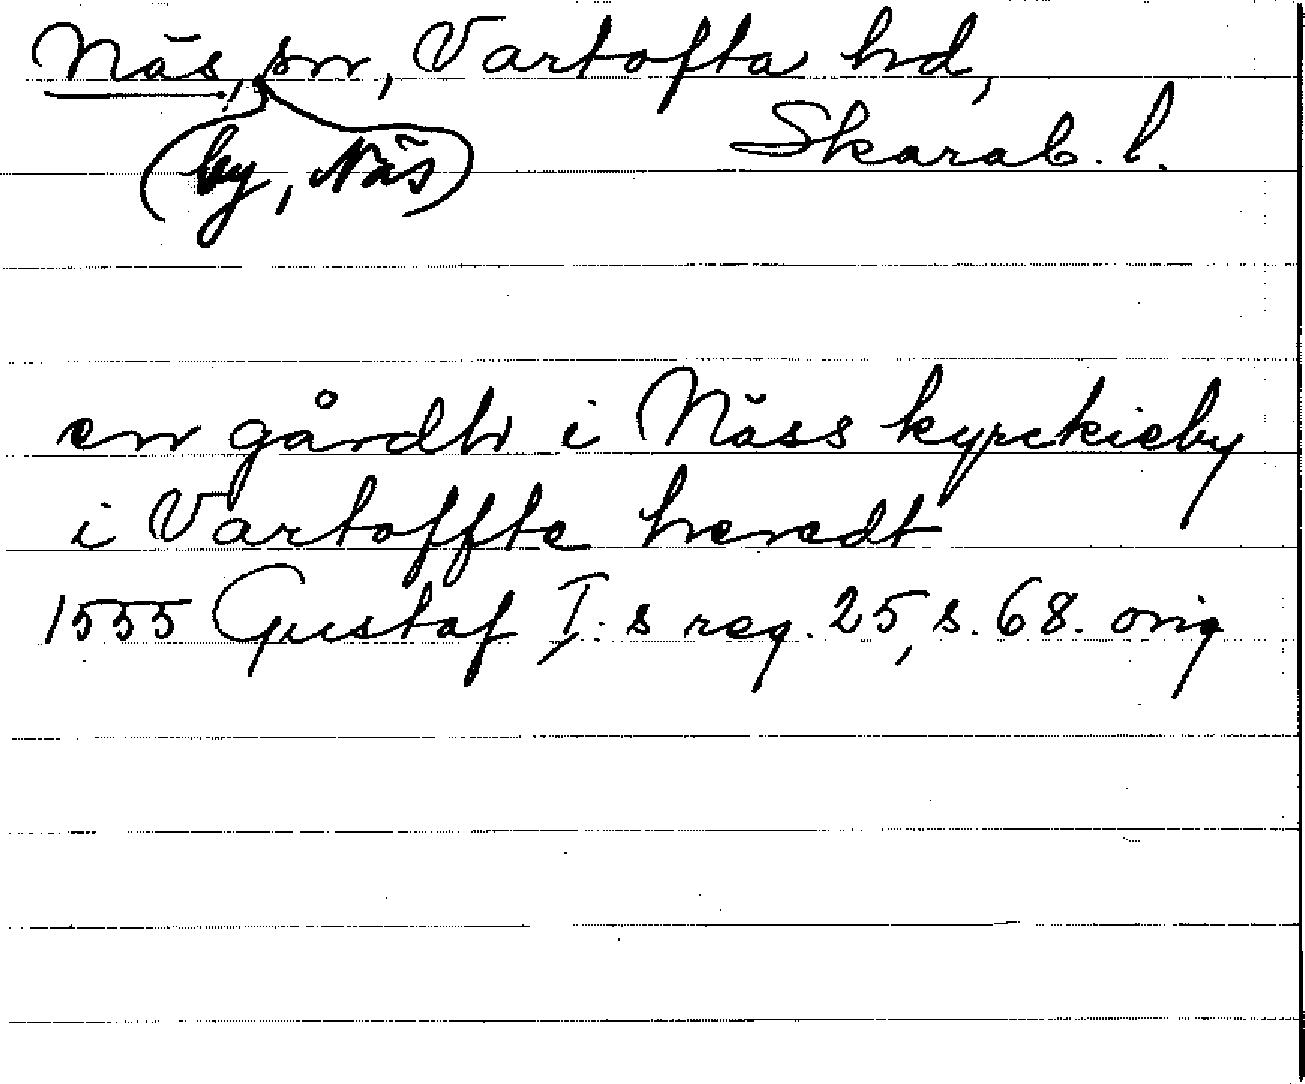 Näs, sn, Vartofta hd,
Skarab. l.
(by, Näs)
en gårdh i Näss kyrckieby
i Vartoffte heredt
1555 Gustaf I:s reg. 25, s. 68. orig